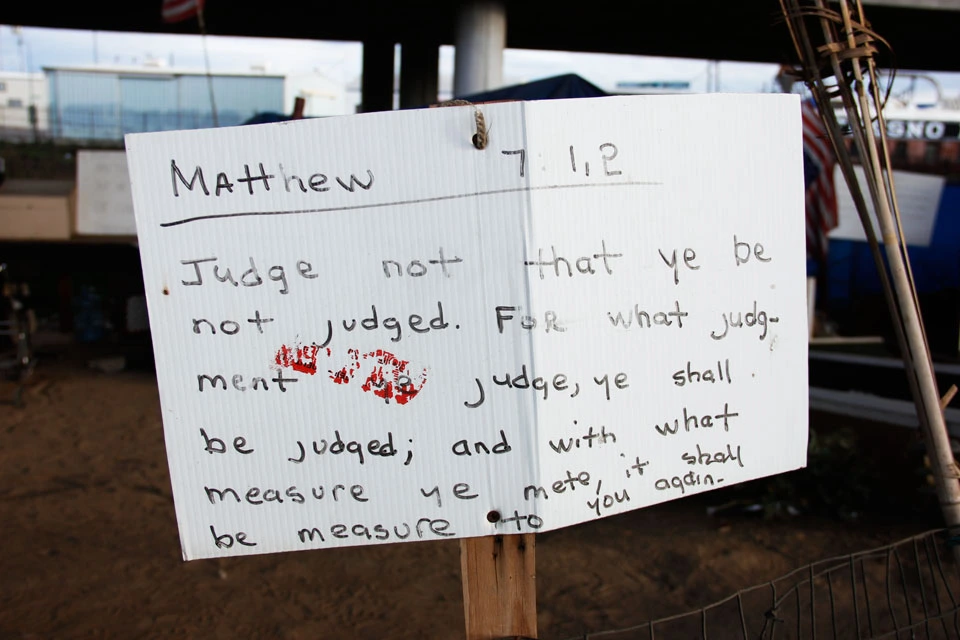 Matthew 7:1,2
Judge not that ye be
not judged. For what judg-
ment ye judge, ye shall
be judged; and with what
measure ye mete, it shall
be measure to you again.
ESNO